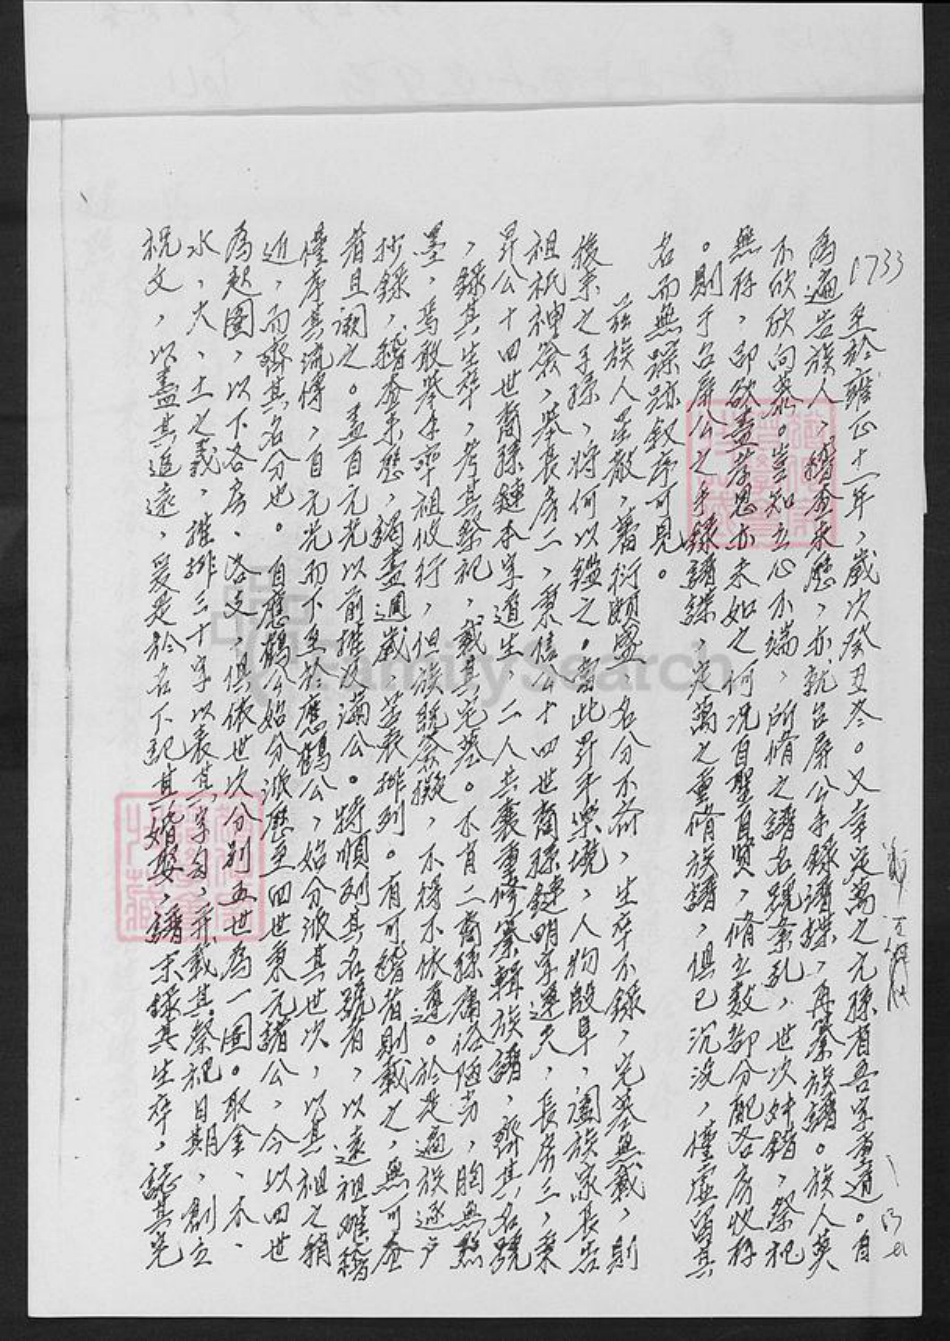 1733
至於雍正十一年，歲次癸丑冬。又幸定萬之元孫者吾字重適。自
為遍告族人，稽查未歷，亦就台屏公手錄譜牒，再纂族譜。族人莫
不欣欣向慕。豈知立心不端，所脩之譜名諱紊亂，世次舛錯，祭祀
無存，即欲盡苦思亦未如之何況自聖自賢，脩立數部分配各房收存
。則于台屏公之手錄譜牒，定萬之重脩族譜，俱已沉沒，僅虛留其
名而無踪跡叙序可見。
茲族人星散，蕃衍頗盛，名分不齊，生卒不錄，完墓無載，則
後來之子孫，將何以鑑之。當此昇平樂境，人物殷阜，闔族家長告
祖祇神簽，舉長房二，秉信公十四世裔孫鏈明字選夫，長房三，秉
昇公十四世裔孫鏈本字道生，二人共襄重修纂輯族譜，齊其名號
，錄其生卒，考其祭祀，載其完墓。不肖二裔孫庸洛陋劣，胸無點
墨，焉敢舉手乎祖攸行，但族繇簽擬，不得不依遵。於是遍族逐戶
抄錄，稽查來歷，竭盡週歲，苦衷排列。有可稽者則載之，無可查
者且闕之。蓋自元光以前推及滿公。特順列其名號者，以遠祖難稽
僅序其流傳，自元光而下至於應鶴公，始分派其世次，以其祖之稍
近，而齊其名分也。自應鶴公始分派歷至四世秉元諸公，今以四世
為起圖，以下各房、各支，俱依世次分別五世為一圖。取金、木、
水、火、土之義，推排三十字以表其字句，并載其祭祀日期，創立
祝文，以盡其追遠，爰是於名下記其婚娶，譜末錄其生卒，誌其完
FamilySearch